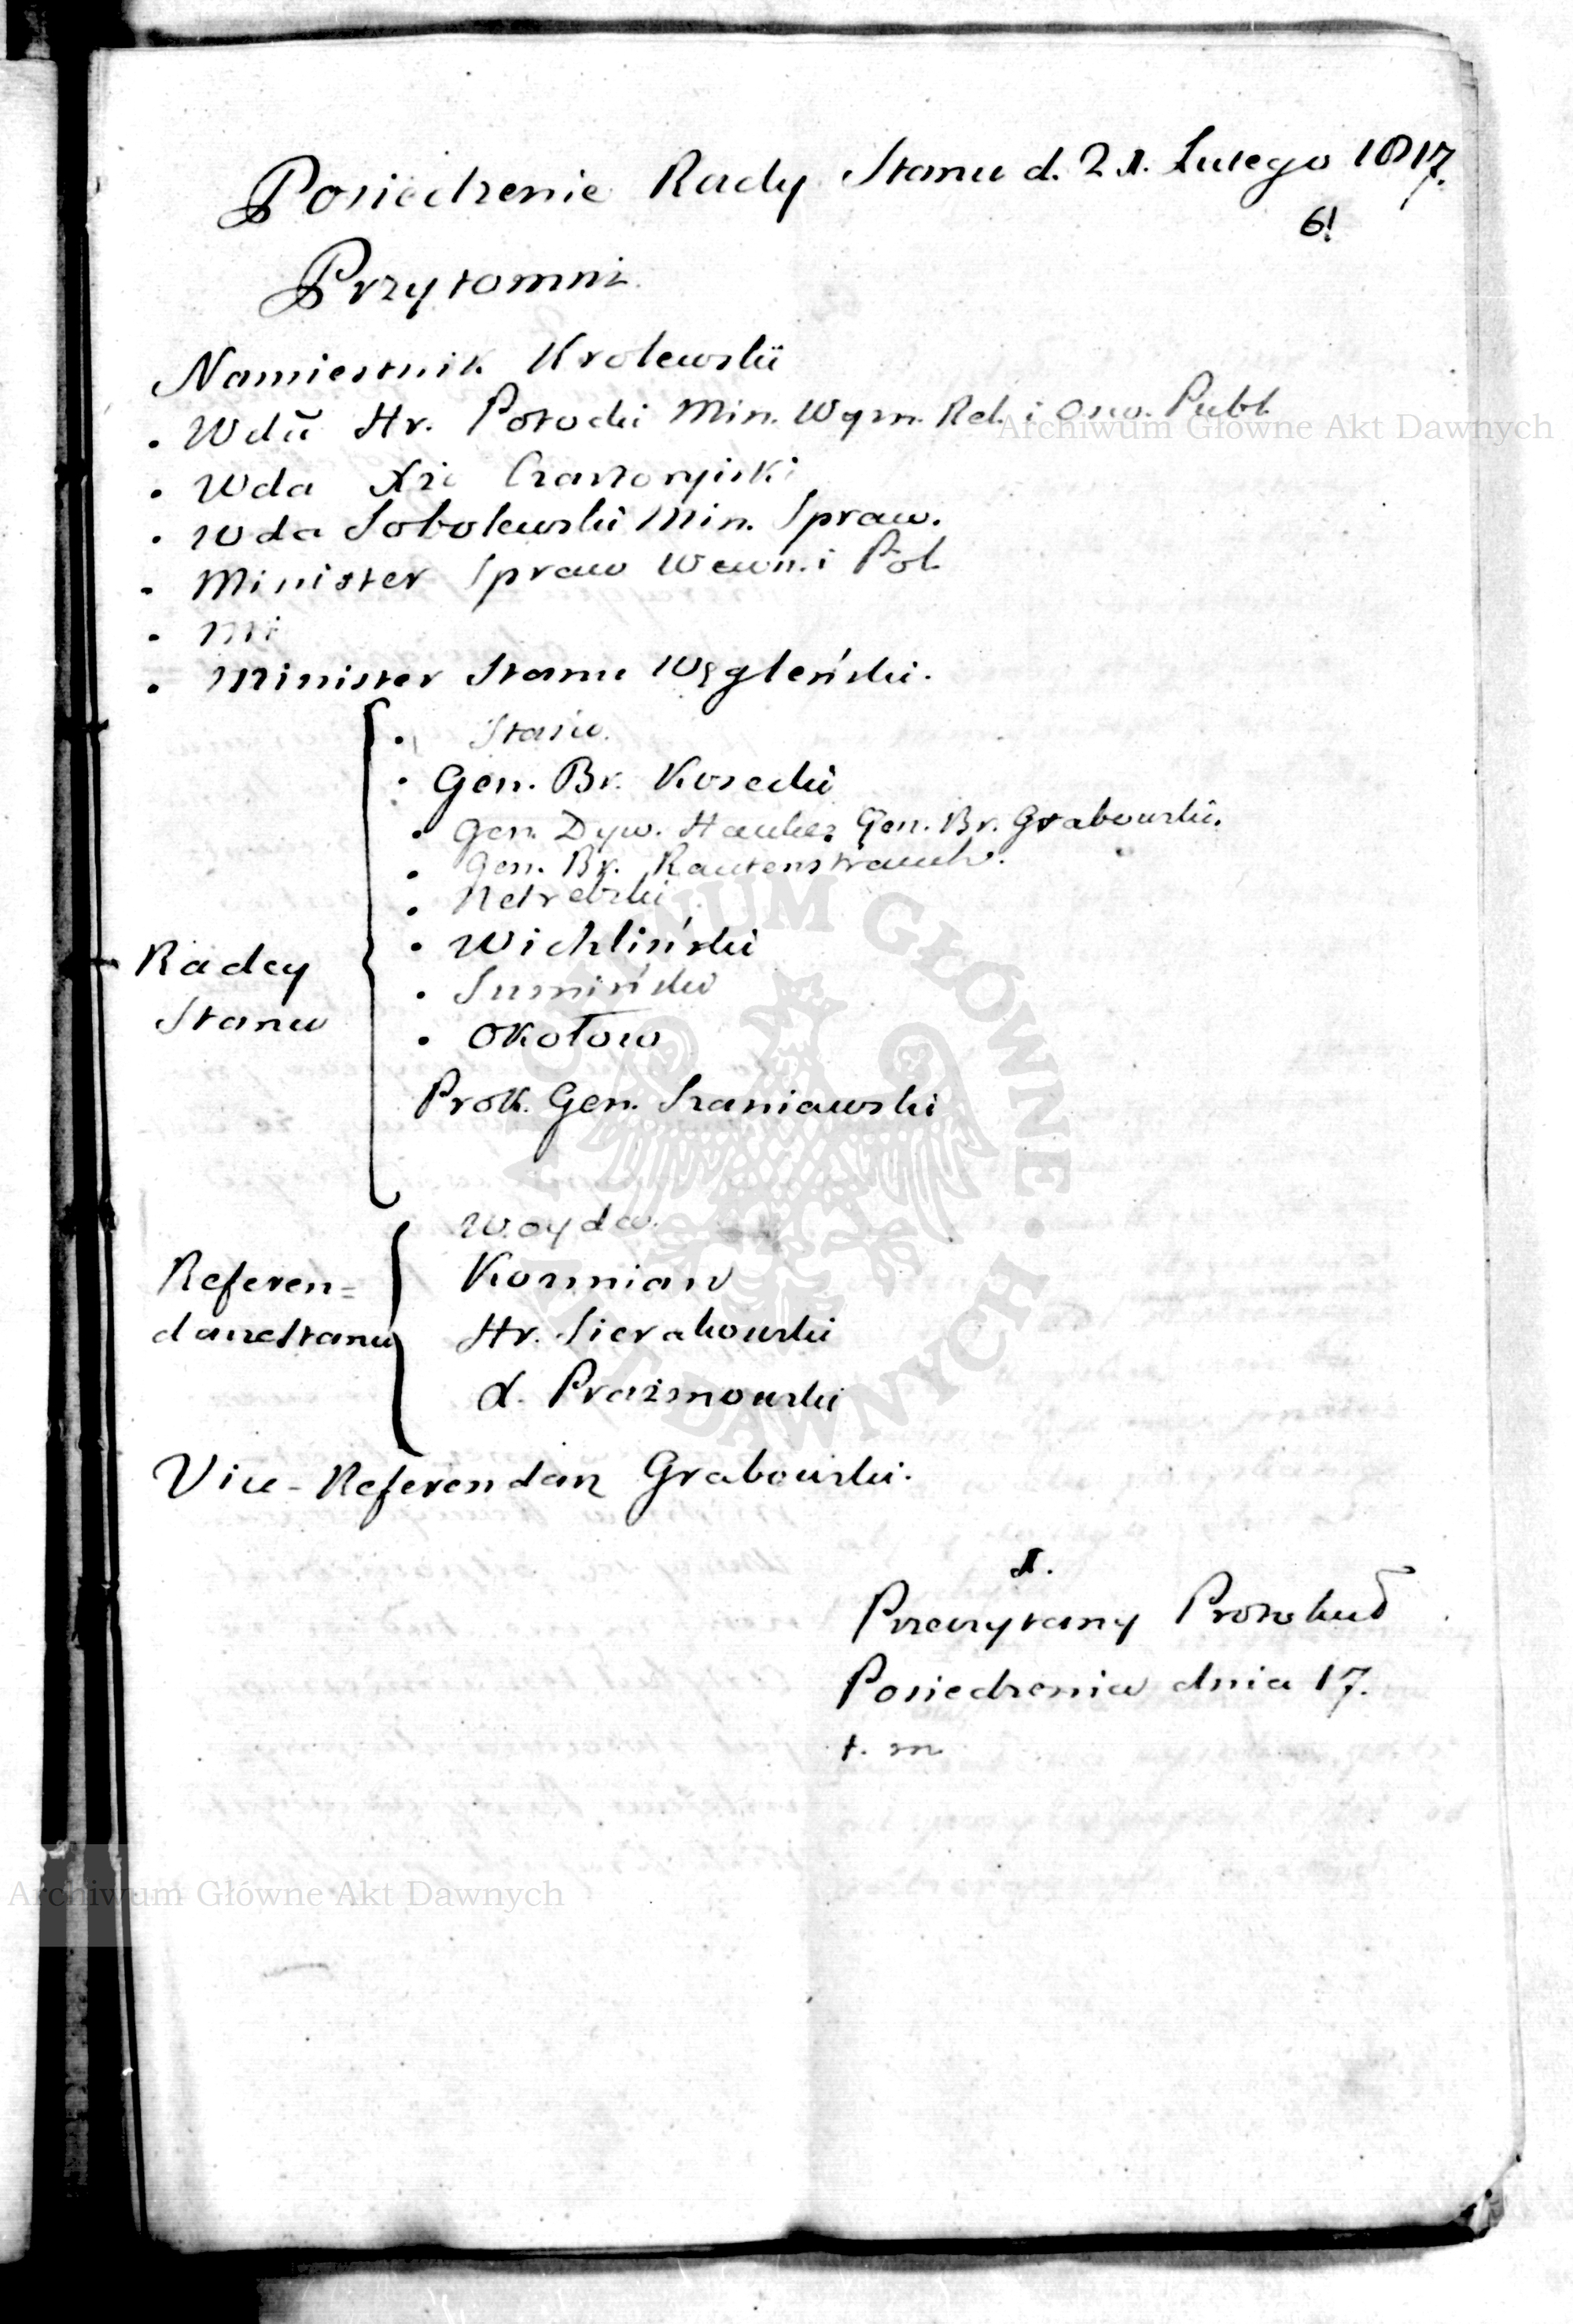 Posiedzenie Rady Stanu d. 21. Lutego 1817.
61
Przytomni.
Namiestnik Krolewski
. Wda Hr. Potocki Min. Wyzn. Rel. i Osw. Publ.
. Wda Xże Czartoryiski
. Wda Sobolewski Min. Spraw.
. Minister Spraw Wewn. i Pol.
. Mi
. Minister Stanu Węgleński.
. Stasic.
. Gen. Br. Kosecki
. Gen. Dyw. Hauke, Gen. Br. Grabowski.
. Gen. Br. Rautenstrauch.
. Netrebski
. Wichliński
. Sumiński
. Okołow
Prok. Gen. Szaniawski
Radcy
Stanu
Woyda.
Kozmian
Hr. Sierakowski
X. Prażmowski
Referen=
darze Stanu
Vice-Referendarz Grabowski.
1.
Przeczytany Protokuł
Posiedzenia dnia 17.
t. m.
Archiwum Główne Akt Dawnych
Archiwum Główne Akt Dawnych
ARCHIWUM GŁÓWNE AKT DAWNYCH